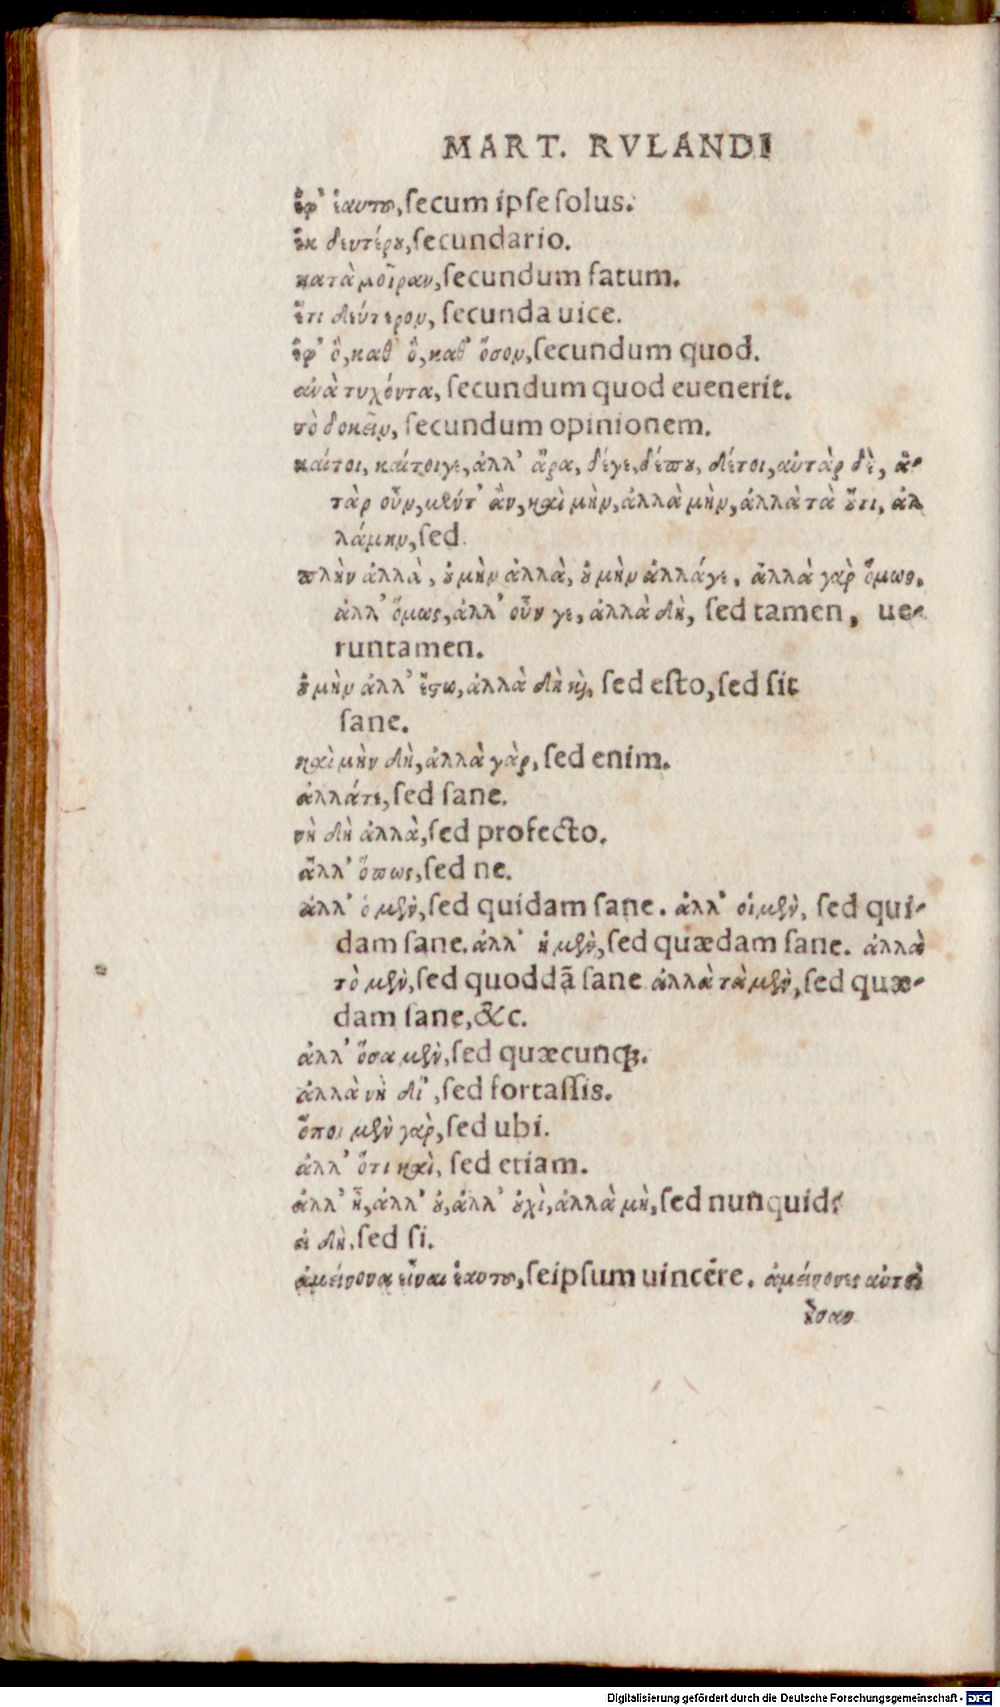 MART. RVLANDI
ἐφ' ἑαυτου, ſecum ipſe ſolus.
ἐκ δευτέρου, ſecundario.
κατὰ μοῖραν, ſecundum fatum.
ἔτι δεύτερον, ſecunda uice.
ἐφ' ὃ, καθ' ὃ, καθ' ὅσον, ſecundum quod.
ἀνὰ τυχόντα, ſecundum quod euenerit.
τὸ δοκεῖν, ſecundum opinionem.
καίτοι, καίτοιγε, ἀλλ' ἄρα, δέγε, δέπου, δέτοι, αὐτὰρ δὲ, ἀ-
τὰρ οὖν, μέντ' ἂν, καὶ μὴν, ἀλλὰ μὴν, ἀλλὰ τὰ ὅτι, ἀλ
λάμην, ſed.
πλὴν ἀλλὰ, οὐ μὴν ἀλλὰ, οὐ μὴν ἀλλάγε, ἀλλὰ γὰρ ὅμως,
ἀλλ' ὅμως, ἀλλ' οὖν γε, ἀλλὰ δὴ, ſed tamen, ue-
runtamen.
οὐ μὴν ἀλλ' ἔστω, ἀλλὰ δὴ καὶ, ſed eſto, ſed ſit
ſane.
καὶ μὴν δὴ, ἀλλὰ γὰρ, ſed enim.
ἀλλάτε, ſed ſane.
νὴ δὴ ἀλλὰ, ſed profecto.
ἀλλ' ὅπως, ſed ne.
ἀλλ' ὁ μὲν, ſed quidam ſane. ἀλλ' οἱ μὲν, ſed qui-
dam ſane. ἀλλ' ἡ μὲν, ſed quædam ſane. ἀλλὰ
τὸ μὲν, ſed quoddã ſane ἀλλὰ τὰ μὲν, ſed quæ-
dam ſane, &c.
ἀλλ' ὅσα μὲν, ſed quæcunq;.
ἀλλὰ νὴ δί', ſed fortaſſis.
ὅποι μὲν γὰρ, ſed ubi.
ἀλλ' ὅτι καὶ, ſed etiam.
ἀλλ' ἦ, ἀλλ' οὐ, ἀλλ' οὐχὶ, ἀλλὰ μὴ, ſed nunquid?
εἰ δὴ, ſed ſi.
ἀμείνονα εἶναι ἑαυτου, ſeipſum uincere. ἀμείνονες αὐτοὶ
ἦσαν
Digitalisierung gefördert durch die Deutsche Forschungsgemeinschaft - DFG